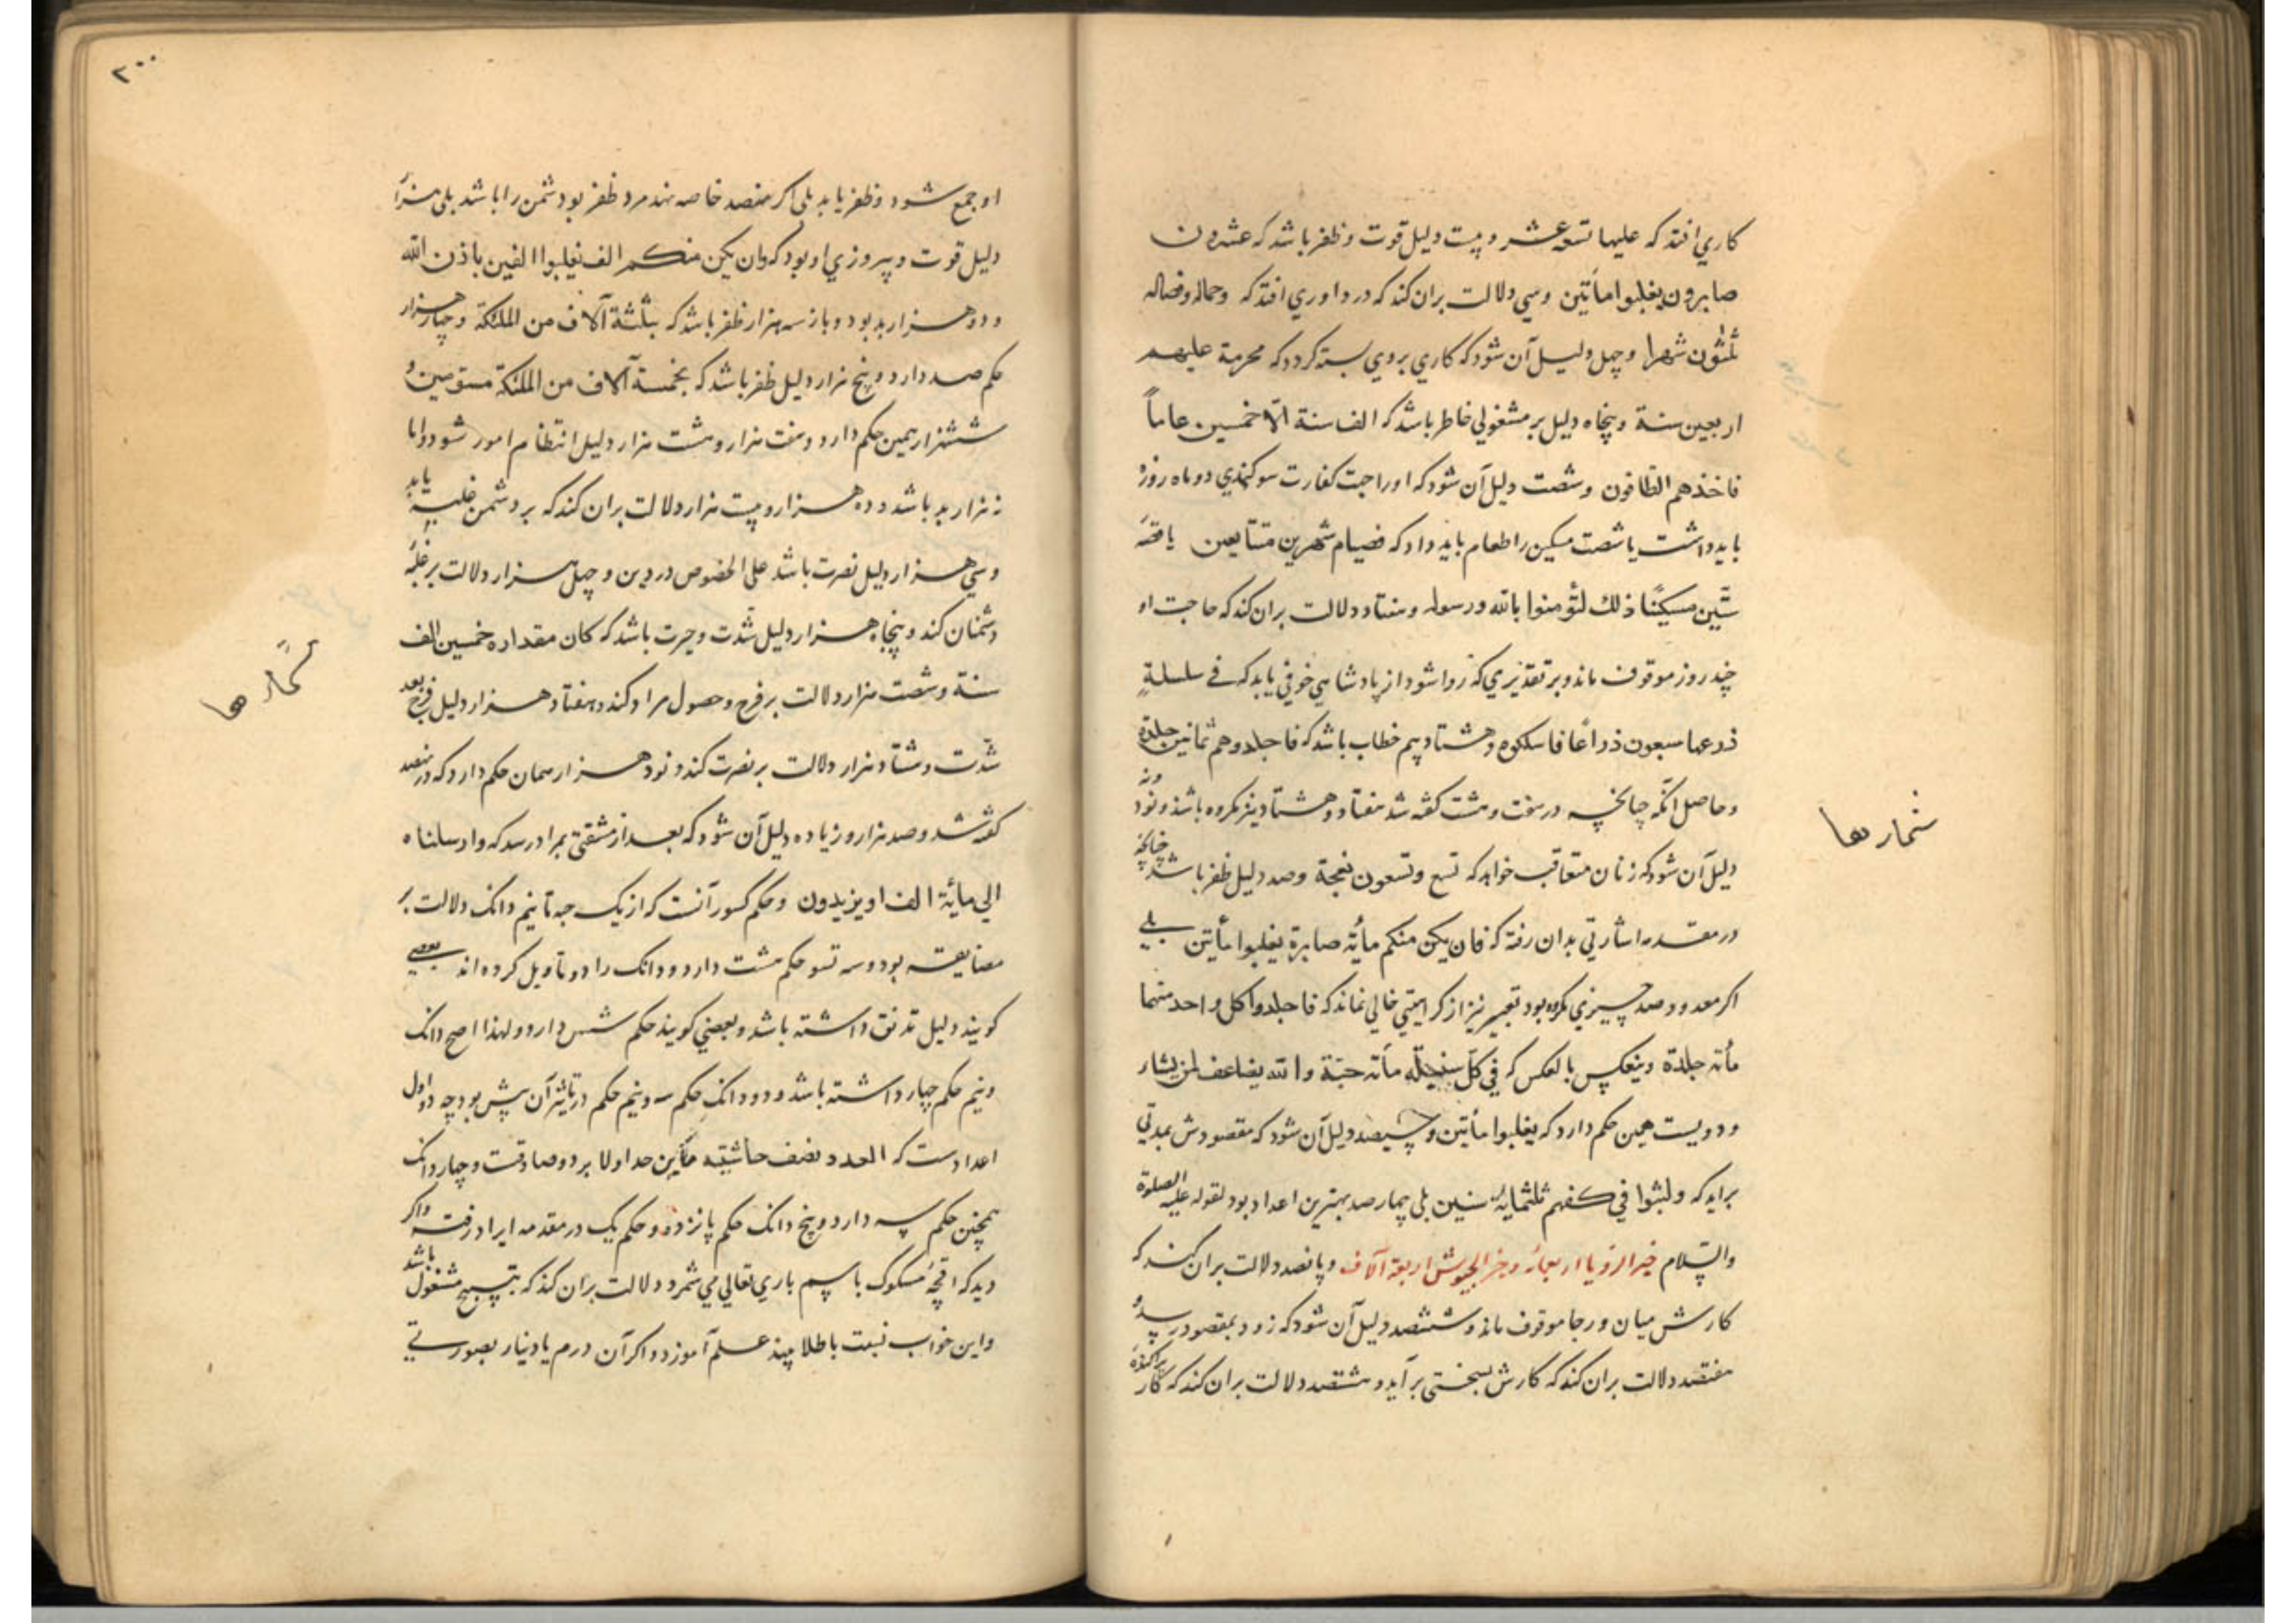 کاري افتد که علیها تسعة عشر و بیست دلیل قوت و ظفر باشد که عشرون
صابرون یغلبوا مأتین وسي دلالت بران کند که در داوري افتد که وحمله وفصاله
ثلثون شهرا وچهل دلیل آن شود که کاري بروي بسته کردد که محرمة علیهم
اربعین سنة وپنجاه دلیل بر مشغولي خاطر باشد که الف سنة الّا خمسین عاماً
فاخذهم الطافون وشصت دلیل آن شود که اورا جهت کفارت سوکندي دو ماه روزه
باید داشت یا شصت مسکین را طعام باید داد که فصیام شهرین متتابعین یا فقد
ستّین مسکینًا ذلك لتؤمنوا بالله ورسوله وهفتاد دلالت بران کند که حاجت او
چند روز موقوف ماند وبر تقدیري که روا شود از پادشاهي خوفي یابد که في سلسلةٍ
ذرعها سبعون ذراعًا فاسلکوه وهشتاد بیم خطاب باشد که فاجلدوهم ثمانین جلدة
وحاصل آنکه چنانچه در هفت وهشت کفته شد هفتاد وهشتاد نیز مکروه باشد ونود ونه
دلیل آن شود که زنان متعاقب خواهد که تسع وتسعون نعجة وصد دلیل ظفر باشد چنانچه
در مقدمه اشارتي بدان رفته که فان یکن منکم مأئة صابرة یغلبوا مأتین بلي
اکر معدود صد چیزي مکروه بود تعبیر نیز از کراهیتي خالي نماند که فاجلدوا کل واحد منهما
مأئة جلدة وینعکس بالعکس که في کلّ سنبلة مأئة حبّة والله یضاعف لمن یشاء
ودویست همین حکم دارد که یغلبوا مأتین وسیصد دلیل آن شود که مقصودش بمدتي
براید که ولبثوا في کهفهم ثلثمایة سنین بلي چهارصد بهترین اعداد بود لقوله علیه الصلوة
والسّلام خیر الرؤیا اربعمائة وخیر الجیوش اربعة آلاف وپانصد دلالت بران کند که
کارش میان ورجا موقوف ماند وششصد دلیل آن شود که زود بمقصود رسد و
هفتصد دلالت بران کند که کارش بسختي برآید وهشتصد دلالت بران کند که کار پراکنده
شمارها
۲۰۰
او جمع شود وظفر یابد بلي اکر هفتصد خاصه نهصد مرد ظفر بود دشمن را باشد بلي هزار
دلیل قوت وپیروزي او بود که وان یکن منکم الف یغلبوا الفین باذن الله
ودو هزار بد بود وباز سه هزار ظفر باشد که بثلثة آلاف من الملئکة وچهار هزار
حکم صد دارد وپنج هزار دلیل ظفر باشد که بخمسة آلاف من الملئکة مسومین و
ششهزار همین حکم دارد وهفت هزار وهشت هزار دلیل انتظام امور شود واما
نه هزار بد باشد وده هزار وبیست هزار دلالت بران کند که بر دشمن غلبه یابد
وسي هزار دلیل نصرت باشد علي الخصوص در دین وچهل هزار دلالت بر غلبه
دشمنان کند وپنجاه هزار دلیل شدّت وحیرت باشد که کان مقداره خمسین الف
سنة وشصت هزار دلالت بر فرح وحصول مراد کند وهفتاد هزار دلیل فرح بعد
شدّت وهشتاد هزار دلالت بر نصرت کند ونود هزار همان حکم دارد که در نهصد
کفته شد وصد هزار وزیاده دلیل آن شود که بعد از مشقتي بمراد رسد که وارسلناه
الي مایٔة الف او یزیدون وحکم کسور آنست که از یك حبه تا نیم دانك دلالت بر
مضایقه بود وسه تسو حکم هشت دارد ودانك را دو تاویل کرده اند بعضي
کویند دلیل تدنق داشته باشد وبعضي کویند حکم شش دارد ولهذا اصح دانك
ونیم حکم چهار داشته باشد ودو دانك حکم سه ونیم حکم در تاثیر آن پیش بود چه دو اول
اعدادست که العدد نصف حاشیتیه واین حد اولا برو صادقست وچهار دانك
همچنین حکم سه دارد وپنج دانك حکم پانزده وحکم یك در مقدمه ایراد رفته واکر
دید که اقچهٔ مسکوك باسم باري تعالي مي شمرد دلالت بران کند که بتسبیح مشغول باشد
واین خواب نسبت باطلا بیند علم آموزد واکر آن درم یا دینار بصورتي
شمارها